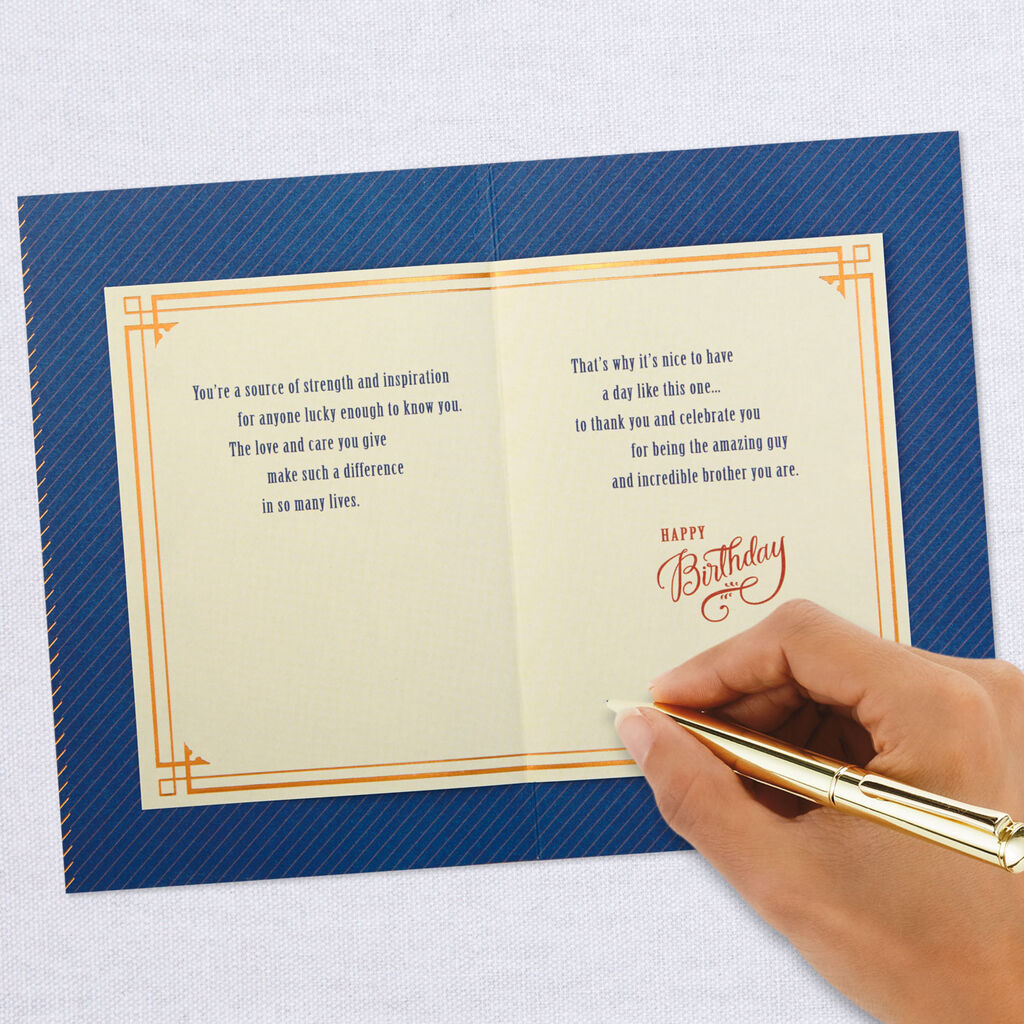 You're a source of strength and inspiration
for anyone lucky enough to know you.
The love and care you give
make such a difference
in so many lives.
That's why it's nice to have
a day like this one...
to thank you and celebrate you
for being the amazing guy
and incredible brother you are.
HAPPY
Birthday